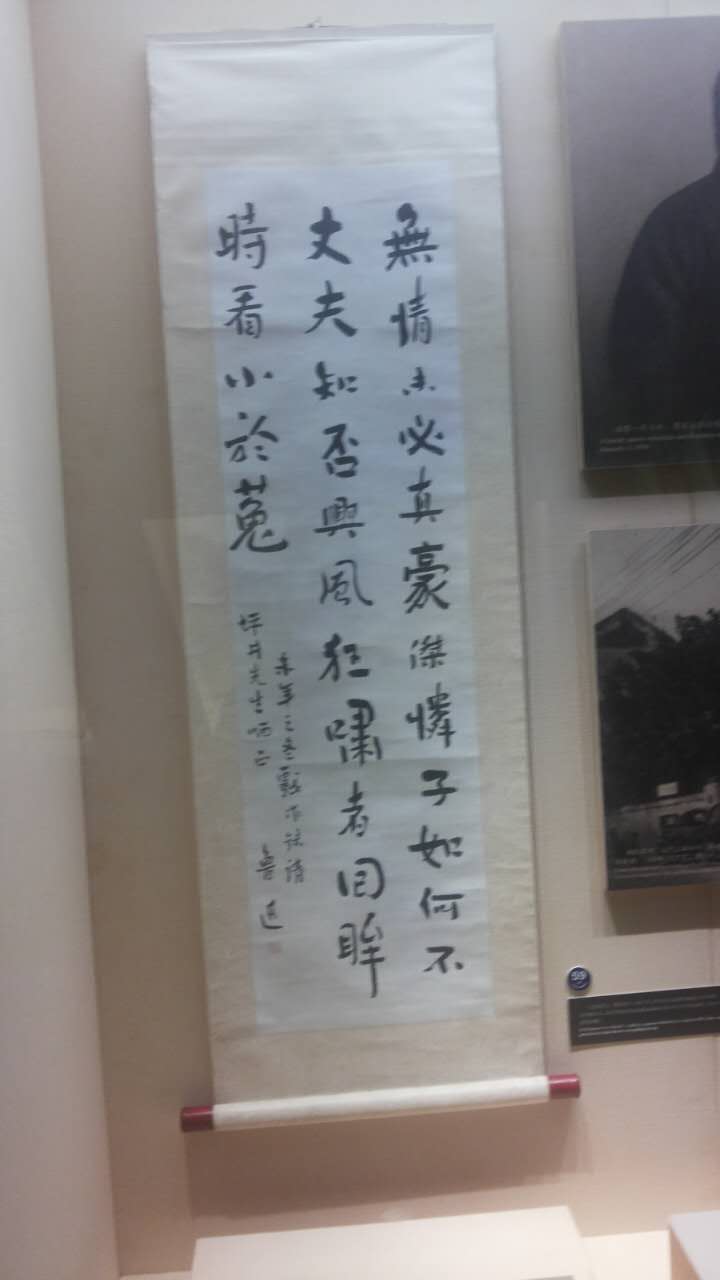 無情未必真豪傑憐子如何不
丈夫知否興風狂嘯者回眸
時看小於菟
未年之冬戲作録請
坪井先生哂正
魯迅
59